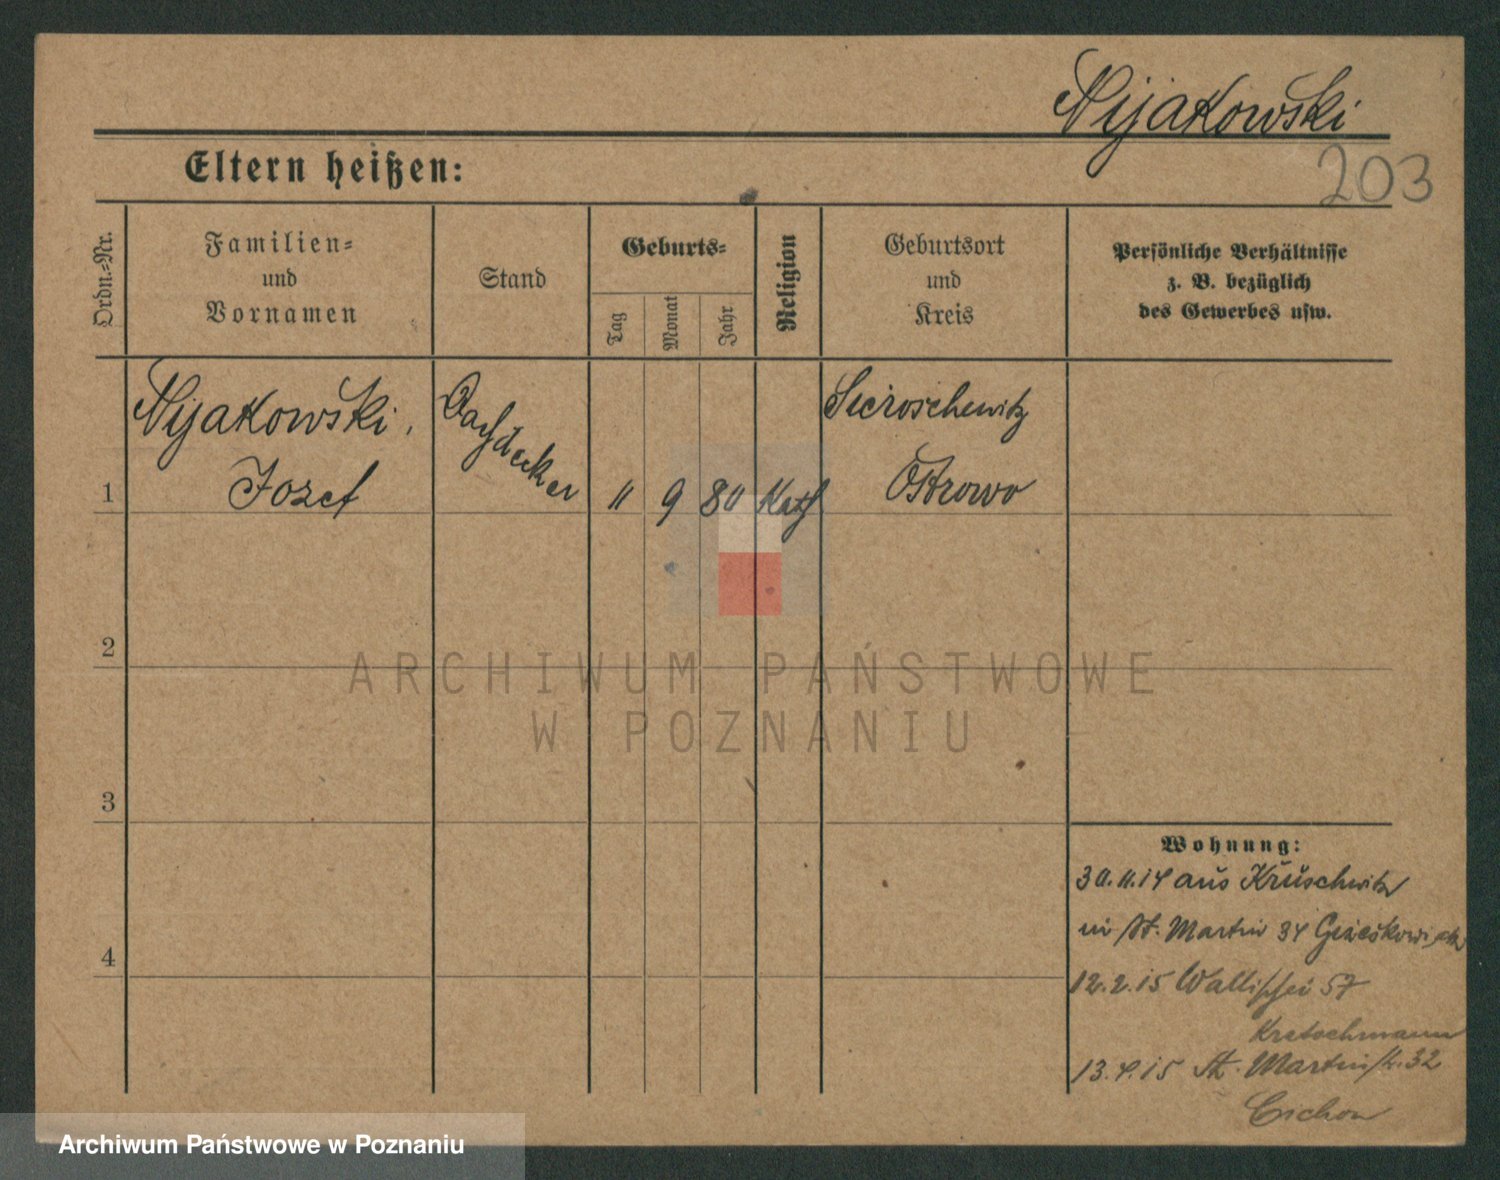 Nijakowski
203
Eltern heißen:
Ordn.=Nr.
Familien=
und
Vornamen
Stand
Geburts=
Tag
Monat
Jahr
Religion
Geburtsort
und
Kreis
Persönliche Verhältnisse
z. B. bezüglich
des Gewerbes usw.
1
Nijakowski,
Jozef
Dachdecker
11 9 80 Kath
Sieroschewitz
Ostrowo
2
3
4
Wohnung:
30.11.14 aus Kruschwitz
in St. Martin 34
12.2.15 Wallischei 57
Kretschmann
13.4.15 St. Martinstr. 32
Cichon
ARCHIWUM PAŃSTWOWE
W POZNANIU
Archiwum Państwowe w Poznaniu